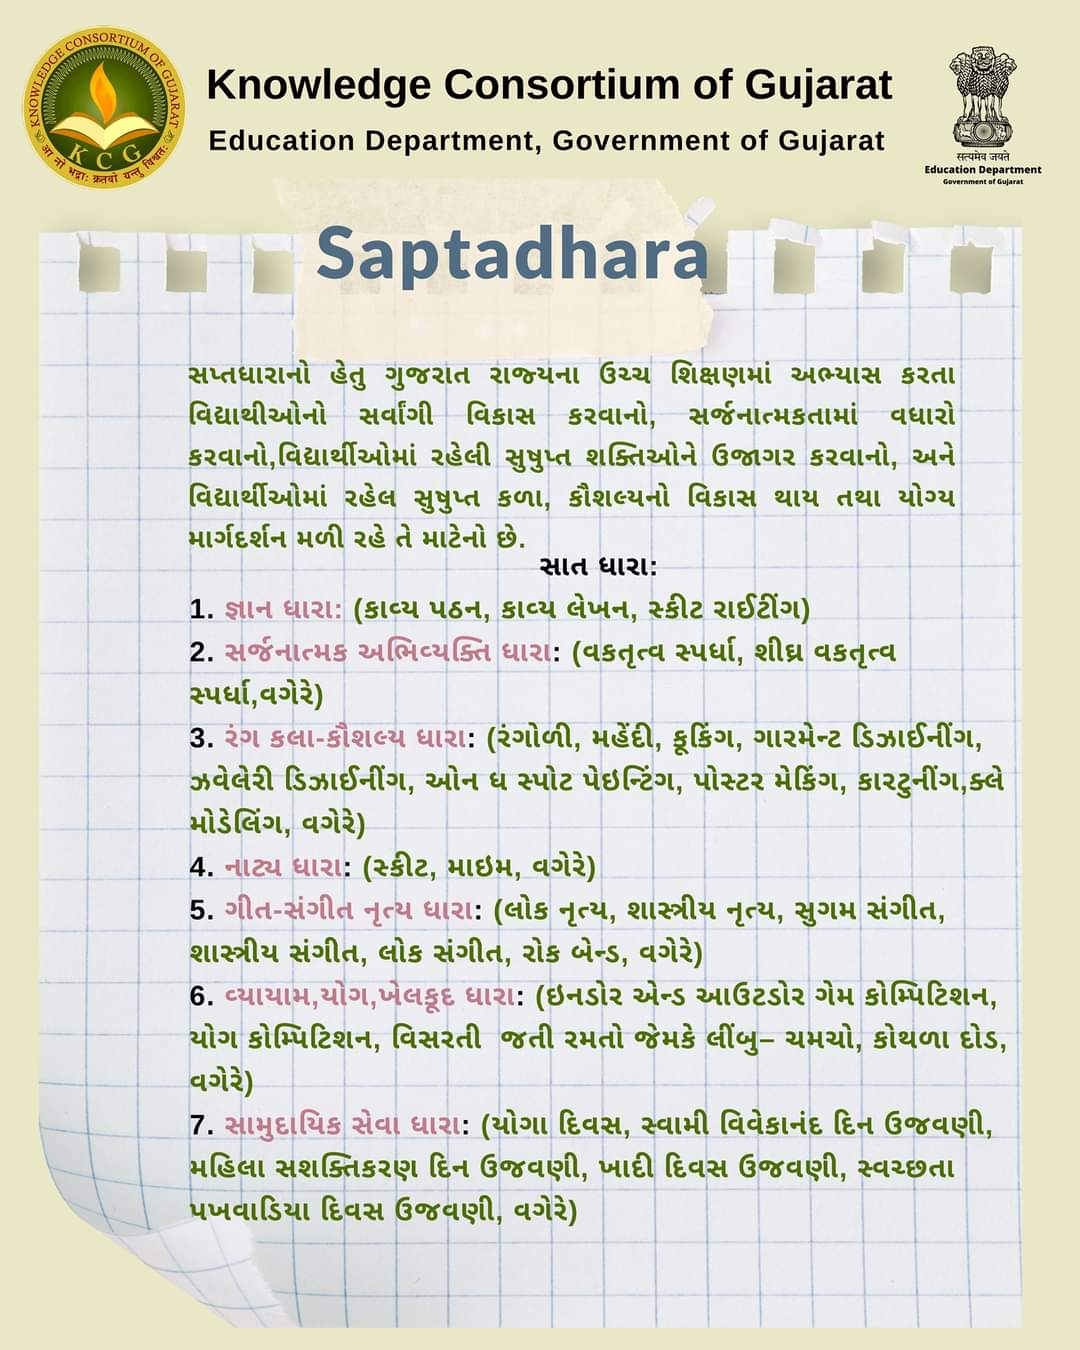 KNOWLEDGE CONSORTIUM OF GUJARAT
K C G
आ नो भद्राः क्रतवो यन्तु विश्वतः
Knowledge Consortium of Gujarat
Education Department, Government of Gujarat
सत्यमेव जयते
Education Department
Government of Gujarat
Saptadhara
સપ્તધારાનો હેતુ ગુજરાત રાજ્યના ઉચ્ચ શિક્ષણમાં અભ્યાસ કરતા
વિદ્યાથીઓનો સર્વાંગી વિકાસ કરવાનો, સર્જનાત્મકતામાં વધારો
કરવાનો,વિદ્યાર્થીઓમાં રહેલી સુષુપ્ત શક્તિઓને ઉજાગર કરવાનો, અને
વિદ્યાર્થીઓમાં રહેલ સુષુપ્ત કળા, કૌશલ્યનો વિકાસ થાય તથા યોગ્ય
માર્ગદર્શન મળી રહે તે માટેનો છે.
સાત ધારા:
1. જ્ઞાન ધારા: (કાવ્ય પઠન, કાવ્ય લેખન, સ્કીટ રાઈટીંગ)
2. સર્જનાત્મક અભિવ્યક્તિ ધારા: (વકતૃત્વ સ્પર્ધા, શીઘ્ર વકતૃત્વ
સ્પર્ધા,વગેરે)
3. રંગ કલા-કૌશલ્ય ધારા: (રંગોળી, મહેંદી, કૂકિંગ, ગારમેન્ટ ડિઝાઈનીંગ,
ઝવેલેરી ડિઝાઈનીંગ, ઓન ધ સ્પોટ પેઇન્ટિંગ, પોસ્ટર મેકિંગ, કારટુનીંગ,ક્લે
મોડેલિંગ, વગેરે)
4. નાટ્ય ધારા: (સ્કીટ, માઇમ, વગેરે)
5. ગીત-સંગીત નૃત્ય ધારા: (લોક નૃત્ય, શાસ્ત્રીય નૃત્ય, સુગમ સંગીત,
શાસ્ત્રીય સંગીત, લોક સંગીત, રોક બેન્ડ, વગેરે)
6. વ્યાયામ,યોગ,ખેલકૂદ ધારા: (ઇનડોર એન્ડ આઉટડોર ગેમ કોમ્પિટિશન,
યોગ કોમ્પિટિશન, વિસરતી જતી રમતો જેમકે લીંબુ– ચમચો, કોથળા દોડ,
વગેરે)
7. સામુદાયિક સેવા ધારા: (યોગા દિવસ, સ્વામી વિવેકાનંદ દિન ઉજવણી,
મહિલા સશક્તિકરણ દિન ઉજવણી, ખાદી દિવસ ઉજવણી, સ્વચ્છતા
પખવાડિયા દિવસ ઉજવણી, વગેરે)